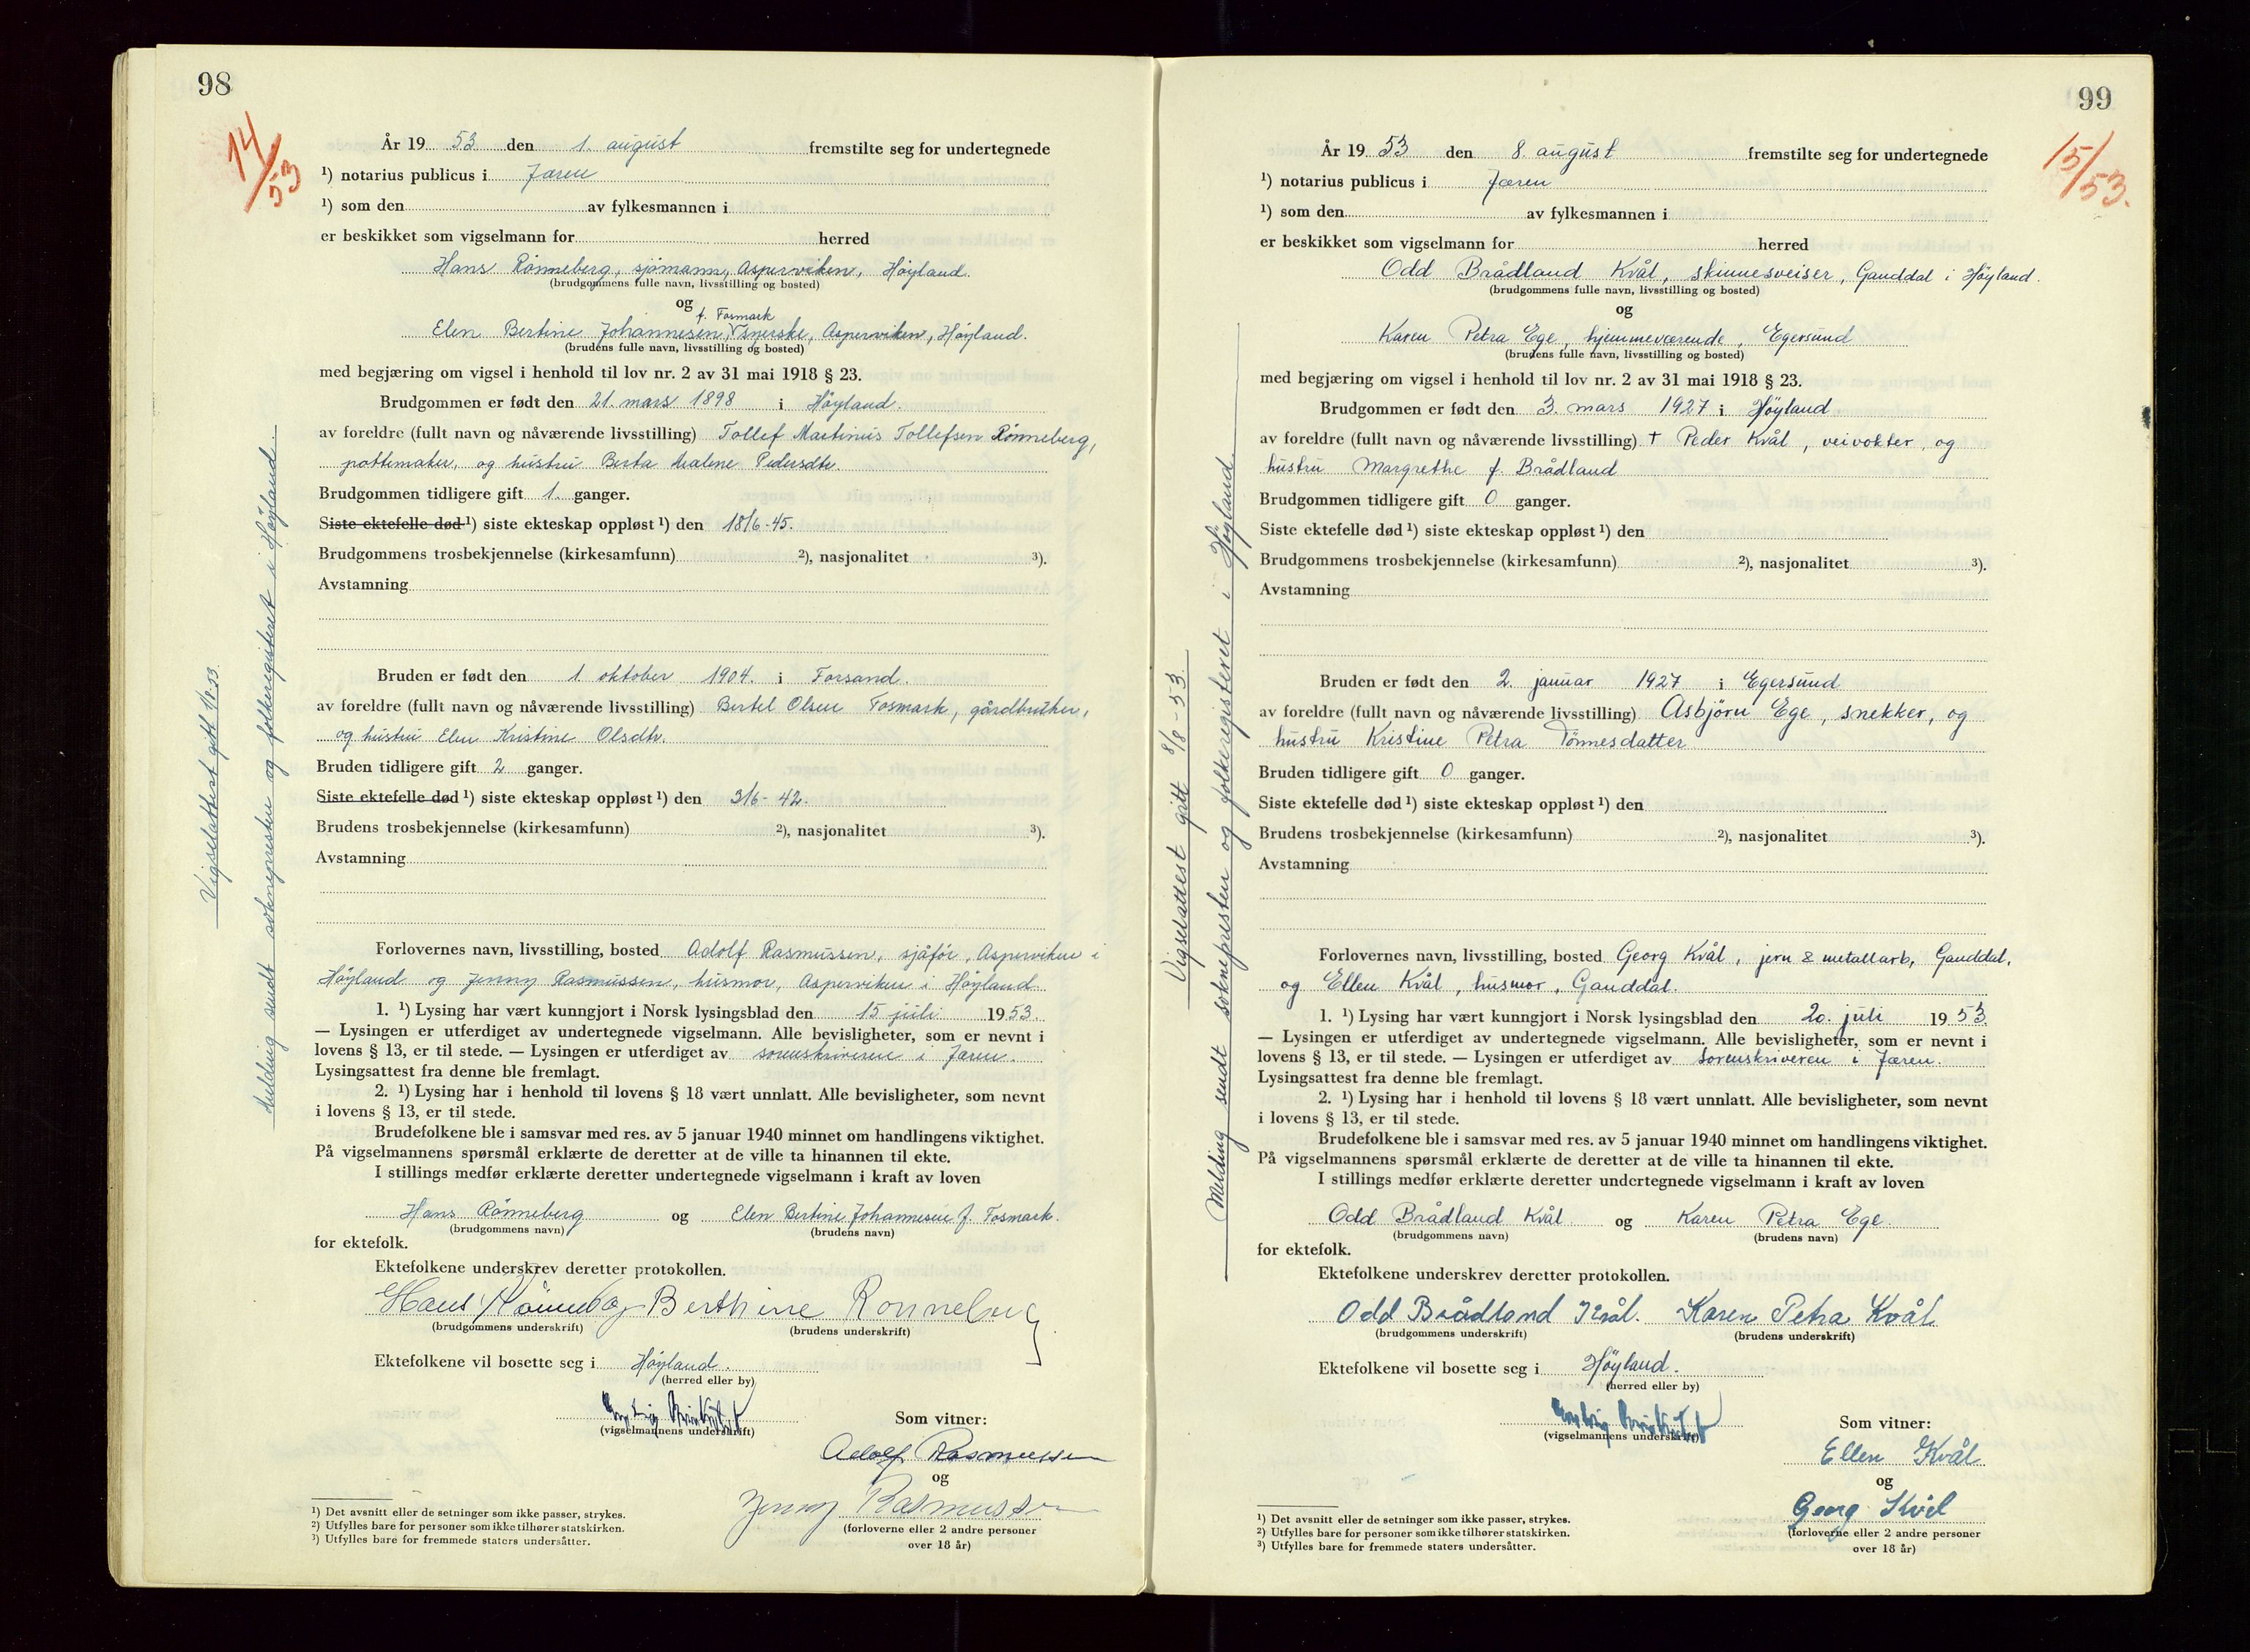 98
14/53
År 19 53 den 1. august fremstilte seg for undertegnede
¹) notarius publicus i Jæren
¹) som den av fylkesmannen i
er beskikket som vigselmann for herred
Hans Rönneberg, sjömann, Asperviken, Höyland.
(brudgommens fulle navn, livsstilling og bosted)
og
f. Fosmark
Elen Bertine Johannesen, syerske, Asperviken, Höyland.
(brudens fulle navn, livsstilling og bosted)
med begjæring om vigsel i henhold til lov nr. 2 av 31 mai 1918 § 23.
Brudgommen er født den 21. mars 1898 i Höyland.
av foreldre (fullt navn og nåværende livsstilling) Tollef Martinius Tollefsen Rönneberg,
pottemaker, og hustru Berta Malene Pedersdtr.
Brudgommen tidligere gift 1. ganger.
Siste ektefelle død ¹) siste ekteskap oppløst ¹) den 18/6-45.
Brudgommens trosbekjennelse (kirkesamfunn) ²), nasjonalitet ³).
Avstamning
Bruden er født den 1 oktober 1904. i Forsand.
av foreldre (fullt navn og nåværende livsstilling) Bertel Olsen Fosmark, gårdbruker,
og hustru Elen Kristine Olsdtr.
Bruden tidligere gift 2 ganger.
Siste ektefelle død ¹) siste ekteskap oppløst ¹) den 3/6-42.
Brudens trosbekjennelse (kirkesamfunn) ²), nasjonalitet ³).
Avstamning
Forlovernes navn, livsstilling, bosted Adolf Rasmussen, sjåför, Asperviken i
Höyland og Jenny Rasmussen, husmor, Asperviken i Höyland.
1. ¹) Lysing har vært kunngjort i Norsk lysingsblad den 15 juli 1953.
— Lysingen er utferdiget av undertegnede vigselmann. Alle bevisligheter, som er nevnt i
lovens § 13, er til stede. — Lysingen er utferdiget av sorenskriveren i Jæren.
Lysingsattest fra denne ble fremlagt.
2. ¹) Lysing har i henhold til lovens § 18 vært unnlatt. Alle bevisligheter, som nevnt
i lovens § 13, er til stede.
Brudefolkene ble i samsvar med res. av 5 januar 1940 minnet om handlingens viktighet.
På vigselmannens spørsmål erklærte de deretter at de ville ta hinannen til ekte.
I stillings medfør erklærte deretter undertegnede vigselmann i kraft av loven
Hans Rönneberg og Elen Bertine Johannesen f. Fosmark.
(brudgommens navn) (brudens navn)
for ektefolk.
Ektefolkene underskrev deretter protokollen.
Hans Rönneberg Berthine Ronneberg
(brudgommens underskrift) (brudens underskrift)
Ektefolkene vil bosette seg i Höyland.
(herred eller by)
(vigselmannens underskrift)
Som vitner:
Adolf Rasmussen
og
Jenny Rasmussen
(forloverne eller 2 andre personer
over 18 år)
¹) Det avsnitt eller de setninger som ikke passer, strykes.
²) Utfylles bare for personer som ikke tilhører statskirken.
³) Utfylles bare for fremmede staters undersåtter.
Vigselattest gitt 1/8-53.
Melding sendt sokneprestens og folkeregisteret i Höyland.
99
15/53.
År 19 53 den 8. august fremstilte seg for undertegnede
¹) notarius publicus i Jæren
¹) som den av fylkesmannen i
er beskikket som vigselmann for herred
Odd Brådland Kvål, skinnesveiser, Ganddal i Höyland.
(brudgommens fulle navn, livsstilling og bosted)
og
Karen Petra Ege, hjemmeværende, Egersund
(brudens fulle navn, livsstilling og bosted)
med begjæring om vigsel i henhold til lov nr. 2 av 31 mai 1918 § 23.
Brudgommen er født den 3. mars 1927 i Höyland
av foreldre (fullt navn og nåværende livsstilling) † Peder Kvål, veivokter, og
hustru Margrethe f. Brådland
Brudgommen tidligere gift 0 ganger.
Siste ektefelle død ¹) siste ekteskap oppløst ¹) den
Brudgommens trosbekjennelse (kirkesamfunn) ²), nasjonalitet ³).
Avstamning
Bruden er født den 2. januar 1927 i Egersund
av foreldre (fullt navn og nåværende livsstilling) Asbjörn Ege, snekker, og
hustru Kristine Petra Tönnesdatter
Bruden tidligere gift 0 ganger.
Siste ektefelle død ¹) siste ekteskap oppløst ¹) den
Brudens trosbekjennelse (kirkesamfunn) ²), nasjonalitet ³).
Avstamning
Forlovernes navn, livsstilling, bosted Georg Kvål, jern & metallarb, Ganddal,
og Ellen Kvål, husmor, Ganddal.
1. ¹) Lysing har vært kunngjort i Norsk lysingsblad den 20. juli 1953.
— Lysingen er utferdiget av undertegnede vigselmann. Alle bevisligheter, som er nevnt i
lovens § 13, er til stede. — Lysingen er utferdiget av Sorenskriveren i Jæren.
Lysingsattest fra denne ble fremlagt.
2. ¹) Lysing har i henhold til lovens § 18 vært unnlatt. Alle bevisligheter, som nevnt
i lovens § 13, er til stede.
Brudefolkene ble i samsvar med res. av 5 januar 1940 minnet om handlingens viktighet.
På vigselmannens spørsmål erklærte de deretter at de ville ta hinannen til ekte.
I stillings medfør erklærte deretter undertegnede vigselmann i kraft av loven
Odd Brådland Kvål og Karen Petra Ege.
(brudgommens navn) (brudens navn)
for ektefolk.
Ektefolkene underskrev deretter protokollen.
Odd Brådland Kvål. Karen Petra Kvål
(brudgommens underskrift) (brudens underskrift)
Ektefolkene vil bosette seg i Höyland.
(herred eller by)
(vigselmannens underskrift)
Som vitner:
Ellen Kvål
og
Georg Kvål
(forloverne eller 2 andre personer
over 18 år)
¹) Det avsnitt eller de setninger som ikke passer, strykes.
²) Utfylles bare for personer som ikke tilhører statskirken.
³) Utfylles bare for fremmede staters undersåtter.
Vigselattest gitt 8/8-53.
Melding sendt soknepresten og folkeregisteret i Höyland.